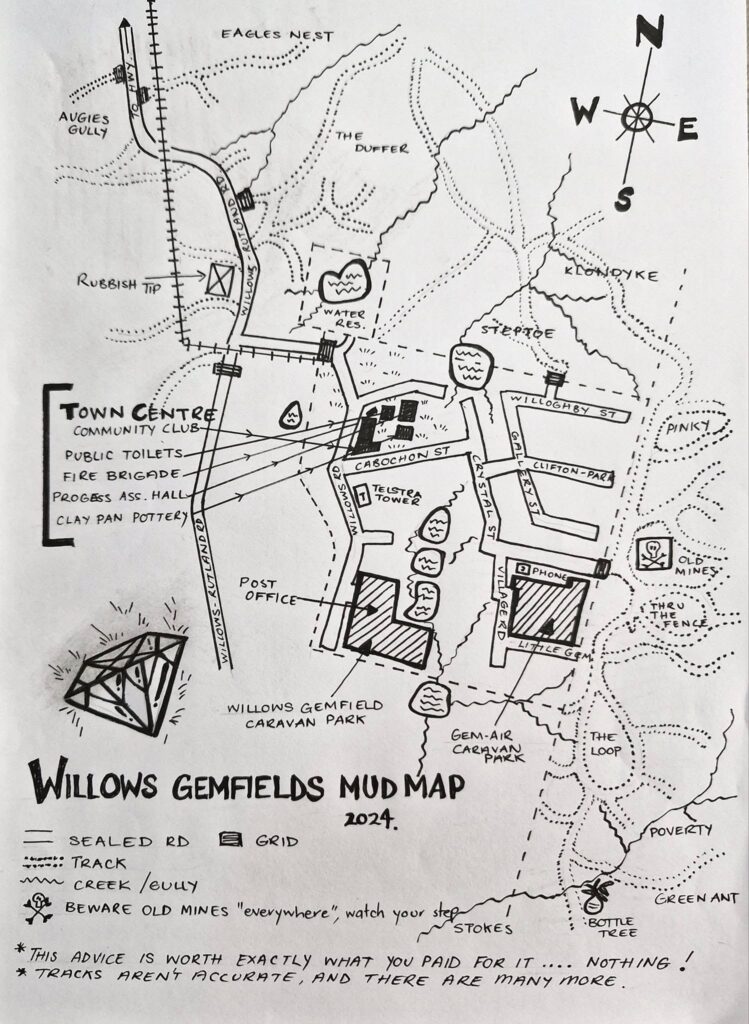 EAGLES NEST
N
TO HWY
AUGIES
GULLY
W
E
THE
DUFFER
S
WILLOWS RUTLAND RD
KLONDYKE
RUBBISH TIP
WATER
RES.
STEPTOE
TOWN CENTRE
COMMUNITY CLUB
PUBLIC TOILETS
FIRE BRIGADE
PROGESS ASS. HALL
CLAY PAN POTTERY
WILLOUGHBY ST
PINKY
CABOCHON ST
GALLERY ST
CLIFTON-PARK
CRYSTAL ST
WILLOWS RD
T
TELSTRA
TOWER
WILLOWS-RUTLAND RD
OLD
MINES
PHONE
POST
OFFICE
VILLAGE RD
THRU
THE
FENCE
LITTLE GEM
WILLOWS GEMFIELD
CARAVAN PARK
GEM-AIR
CARAVAN
PARK
THE
LOOP
WILLOWS GEMFIELDS MUD MAP
2024.
SEALED RD
GRID
TRACK
CREEK/GULLY
BEWARE OLD MINES "everywhere", watch your step
POVERTY
GREEN ANT
STOKES
BOTTLE
TREE
*THIS ADVICE IS WORTH EXACTLY WHAT YOU PAID FOR IT .... NOTHING!
* TRACKS AREN'T ACCURATE, AND THERE ARE MANY MORE.